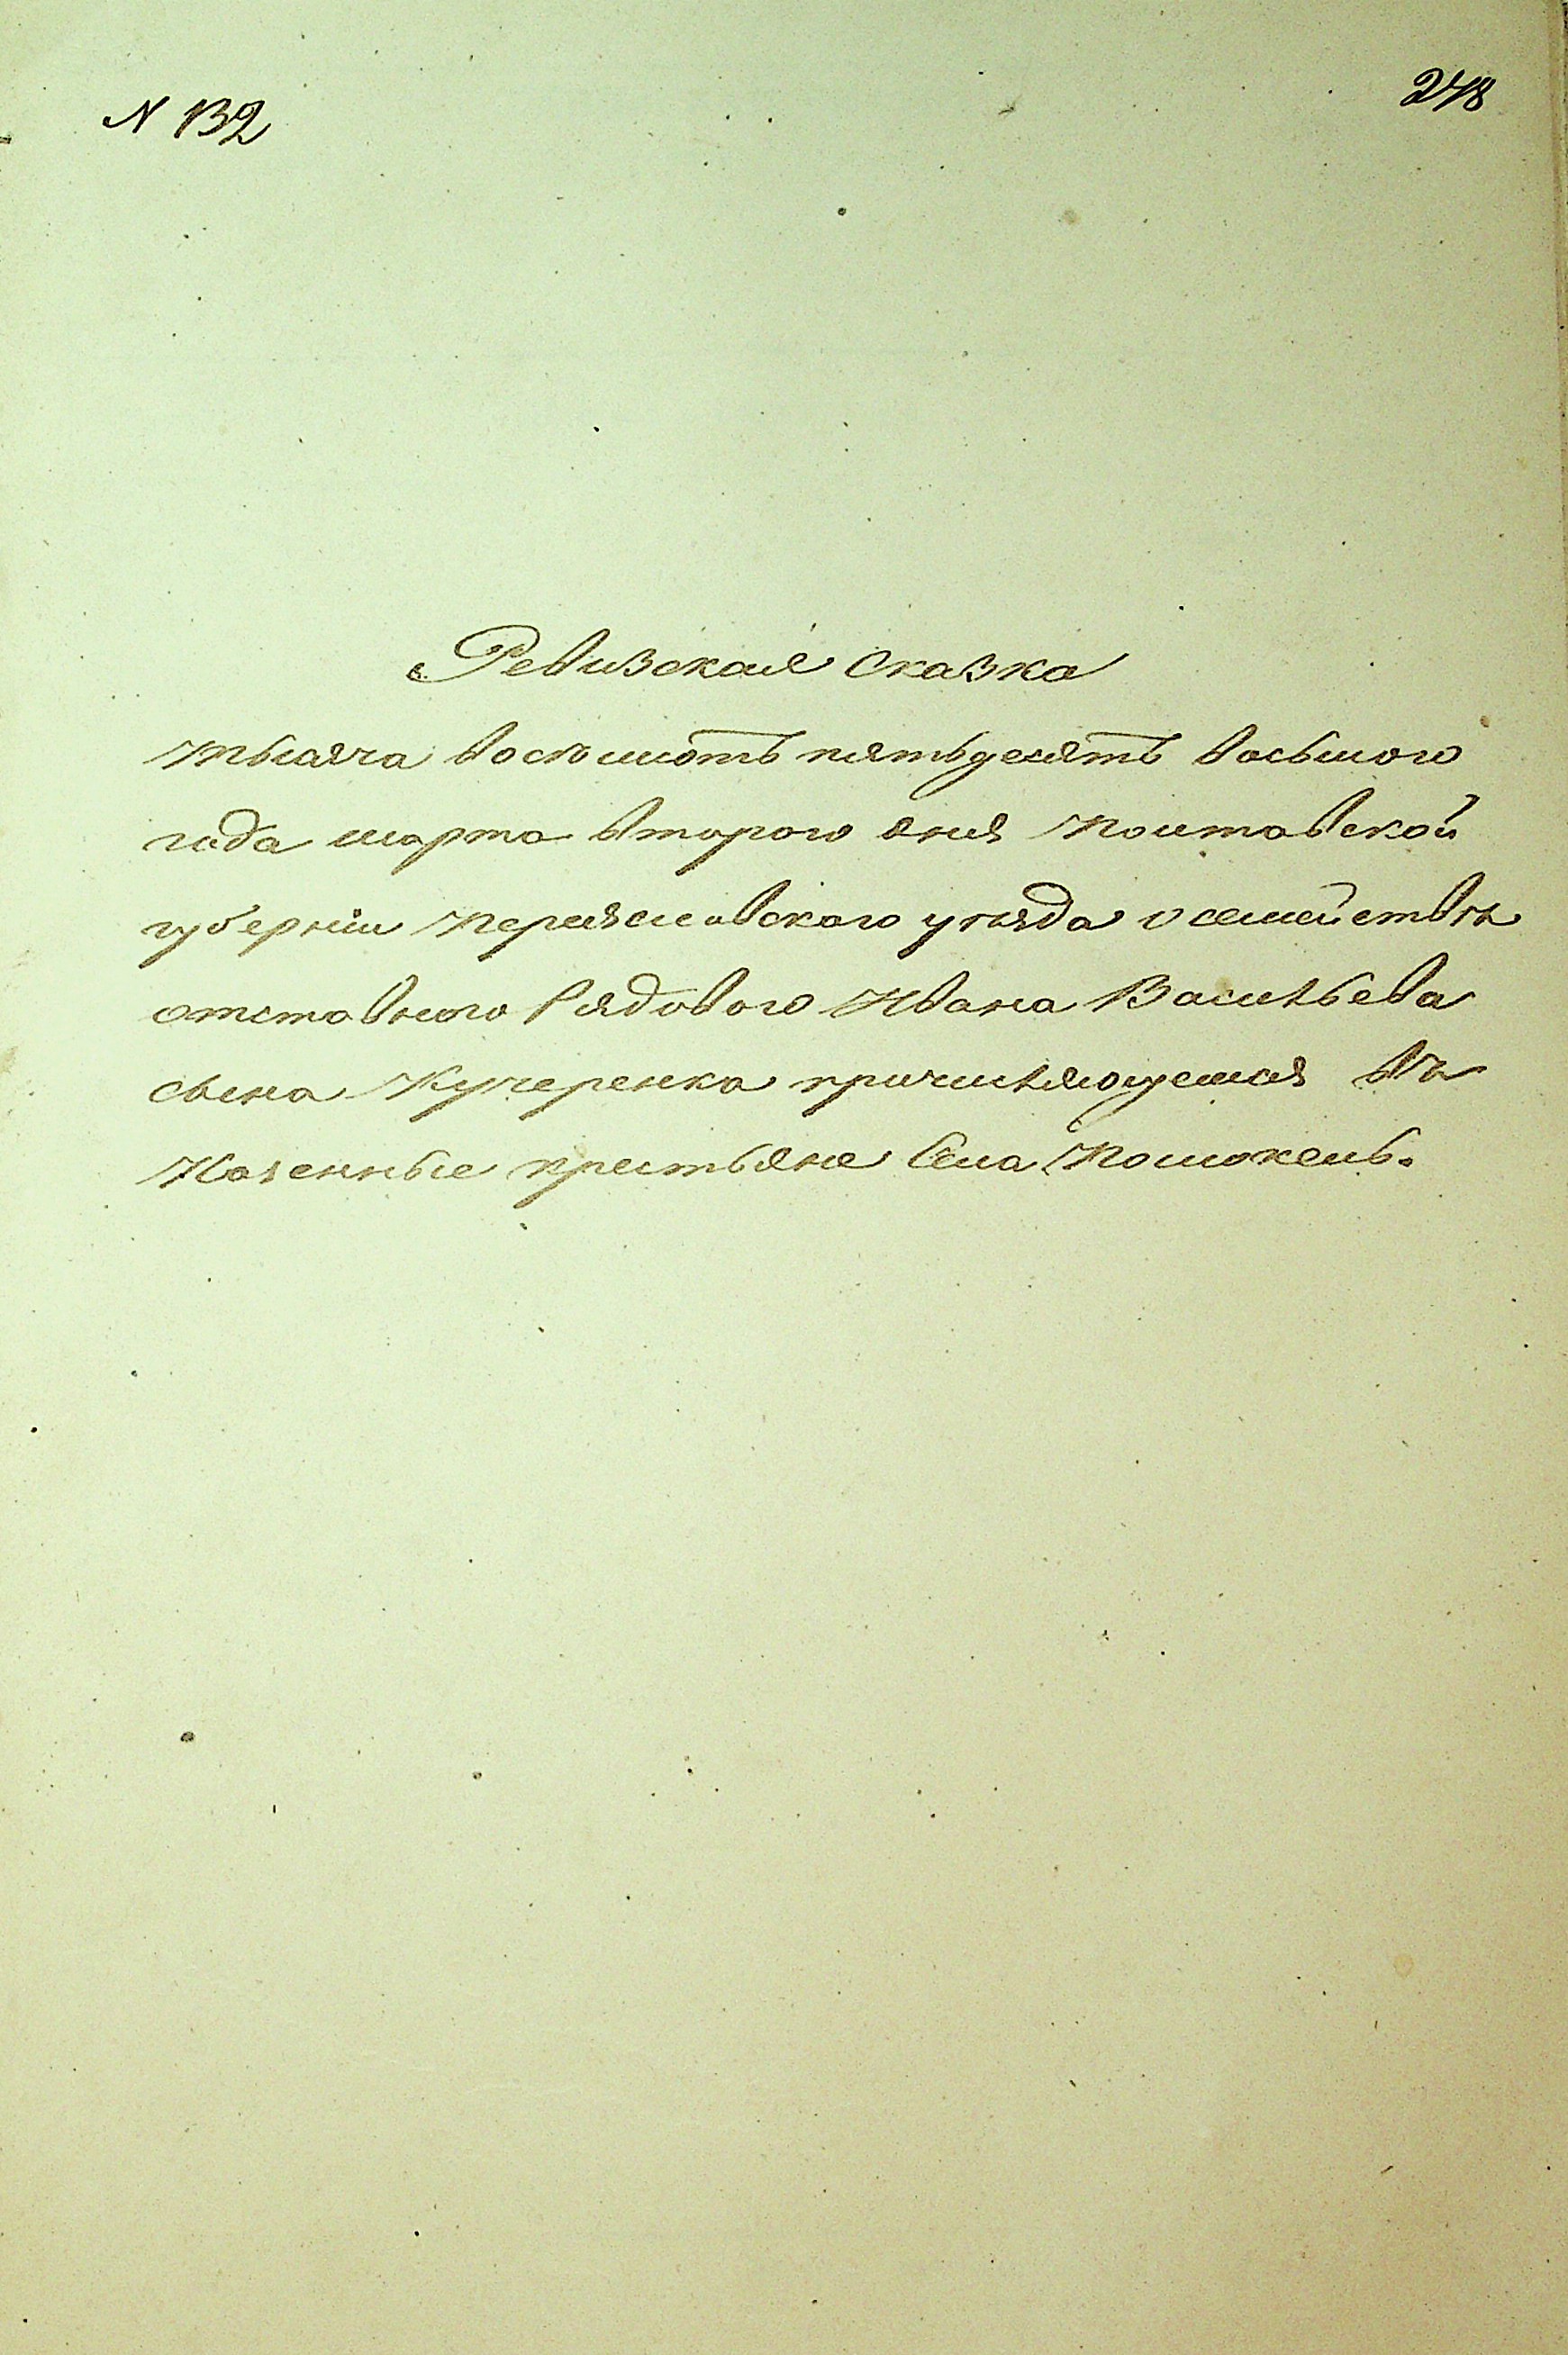 N 132
248
Ревизская сказка
тысяча восемьсотъ пятьдесятъ восьмого
года марта второго дня Полтавской
губерніи Переясловского уѣзда о семействѣ
отставного Рядового Ивана Васильева
сына Кучеренка причисляющемся въ
Казенные крестьяне Села